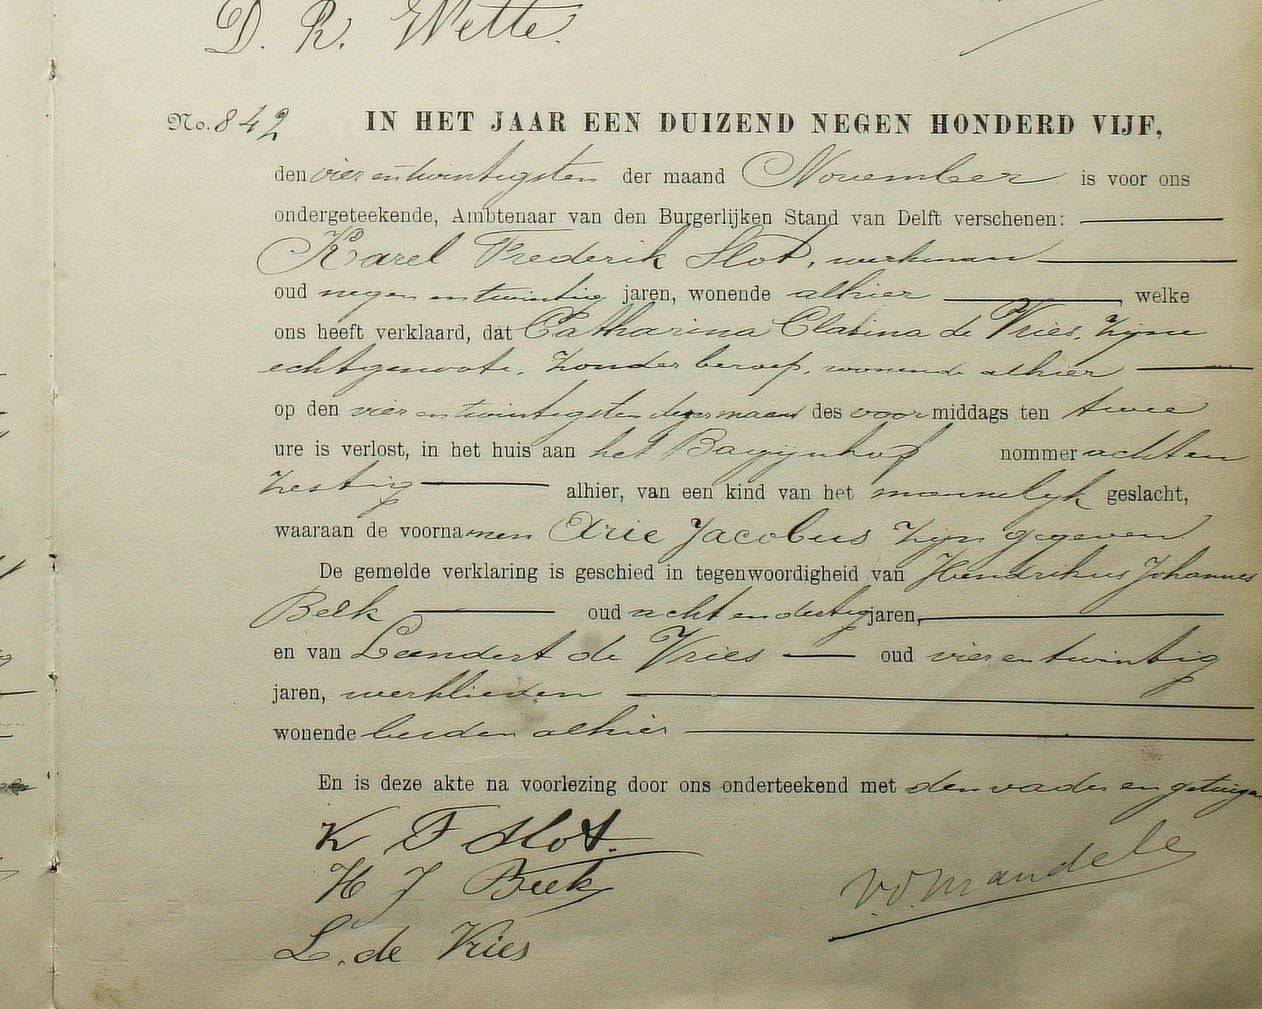 D. R. Wette.
No. 842 IN HET JAAR EEN DUIZEND NEGEN HONDERD VIJF,
den vier en twintigsten der maand November is voor ons
ondergeteekende, Ambtenaar van den Burgerlijken Stand van Delft verschenen:
Karel Frederik Slot, werkman
oud negen en twintig jaren, wonende alhier, welke
ons heeft verklaard, dat Catharina Clasina de Vries, zijne
echtgenoote, zonder beroep, wonende alhier
op den vier en twintigsten dezer maand des voormiddags ten twee
ure is verlost, in het huis aan het Bagijnhof nommer acht en
zestig alhier, van een kind van het mannelijk geslacht,
waaraan de voornamen Arie Jacobus zijn gegeven
De gemelde verklaring is geschied in tegenwoordigheid van Hendrikus Johannes
Beek oud acht en dertig jaren,
en van Leendert de Vries oud vier en twintig
jaren, werklieden
wonende beiden alhier
En is deze akte na voorlezing door ons onderteekend met den vader en getuigen
K F Slot.
H J Beek
v. d. Mandele
L. de Vries